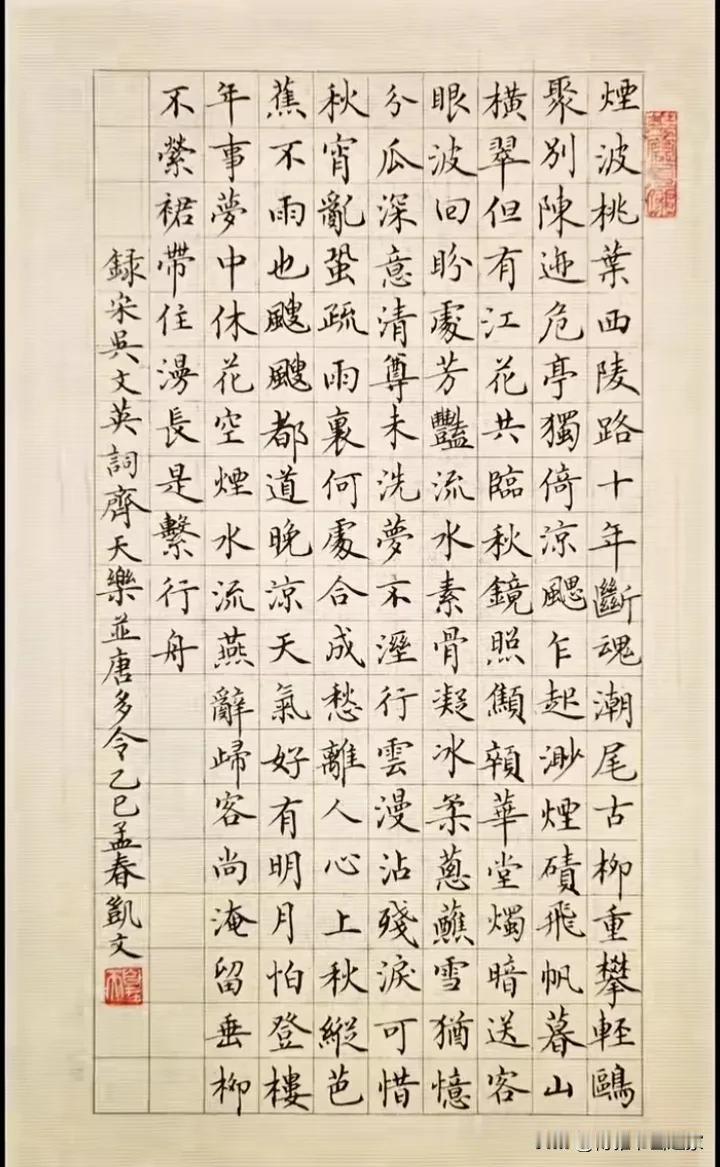 煙波桃葉西陵路十年斷魂潮尾古柳重攀輕鷗
聚別陳迹危亭獨倚涼颸乍起渺煙磧飛帆暮山
橫翠但有江花共臨秋鏡照顦顇華堂燭暗送客
眼波回盼處芳豔流水素骨凝冰柔蔥蘸雪猶憶
分瓜深意清尊未洗夢不溼行雲漫沾殘淚可惜
秋宵亂蛩疏雨裏何處合成愁離人心上秋縱芭
蕉不雨也颼颼都道晚涼天氣好有明月怕登樓
年事夢中休花空煙水流燕辭歸客尚淹留垂柳
不縈裙帶住漫長是繫行舟
錄宋吳文英詞齊天樂並唐多令乙巳孟春凱文